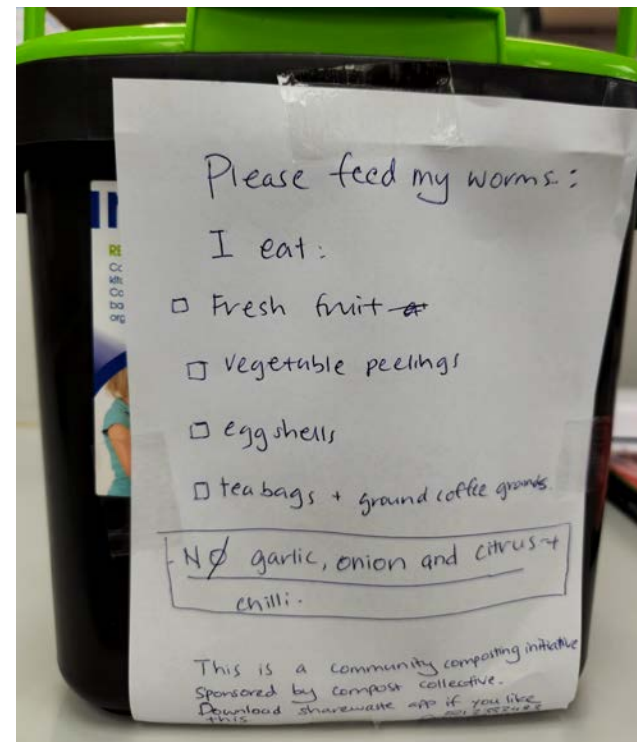 Please feed my worms:
I eat:
Fresh fruit
vegetable peelings
egg shells
tea bags + ground coffee grounds.
NO garlic, onion and citrus +
chilli.
This is a community composting initiative
sponsored by compost collective.
Download sharewaste app if you like
this